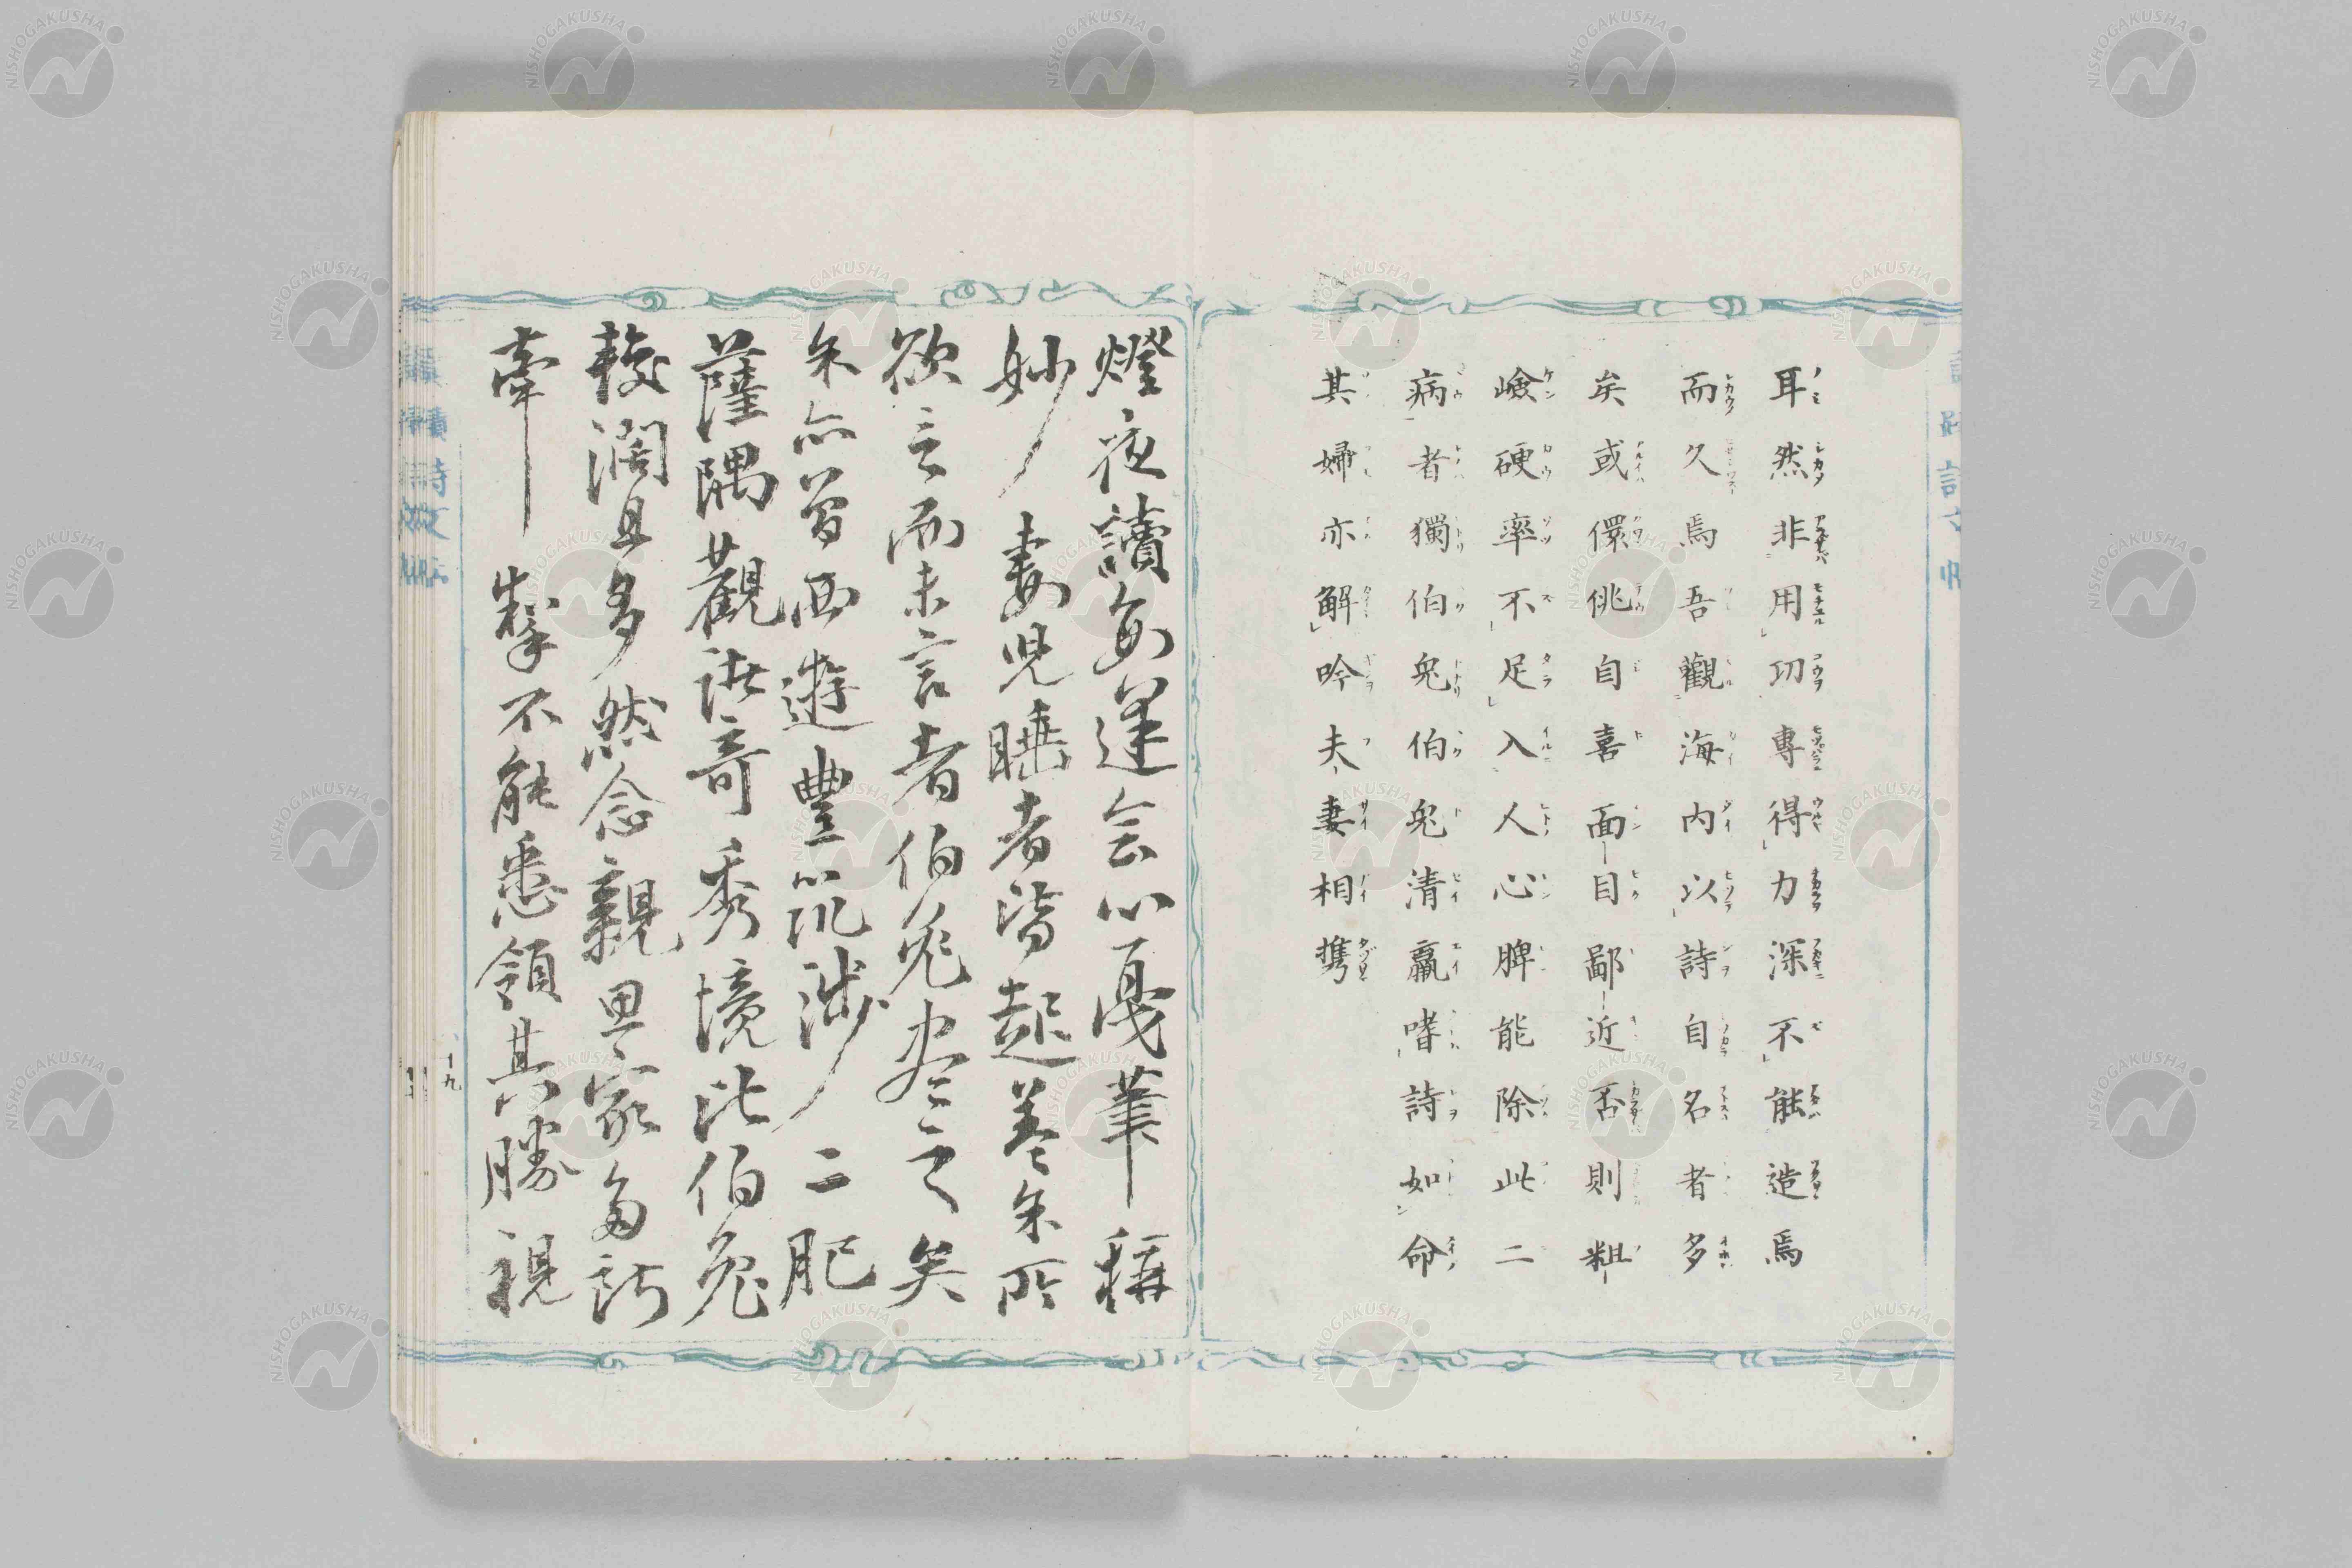 耳然非用功專得力深不能造焉
而久焉吾觀海内以詩自名者多
矣或儇佻自喜面目鄙近否則粗
嶮硬率不足入人心脾能除此二
病者獨伯皃伯皃清羸嗜詩如命
其婦亦解吟夫妻相携
燈夜讀每逢会心戛筆稱
妙妻児睡者皆起蓋余所
欲言而未言者伯皃尽之矣
余亦曽西遊豊筑渉二肥
薩隅觀諸奇秀境比伯皃
較濶且多然念親思家為所
牽掣不能悉領其勝視
十九